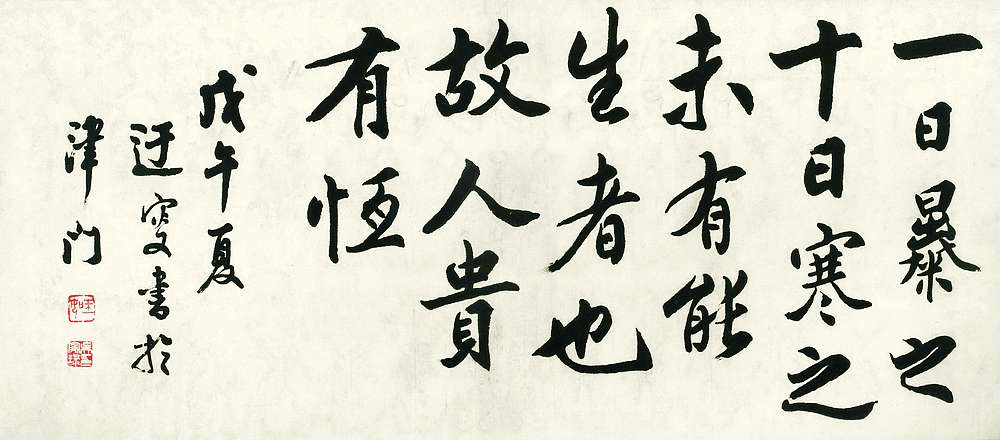 一日暴之
十日寒之
未有能
生者也
故人貴
有恆
戊午夏
迂叟書於
津門